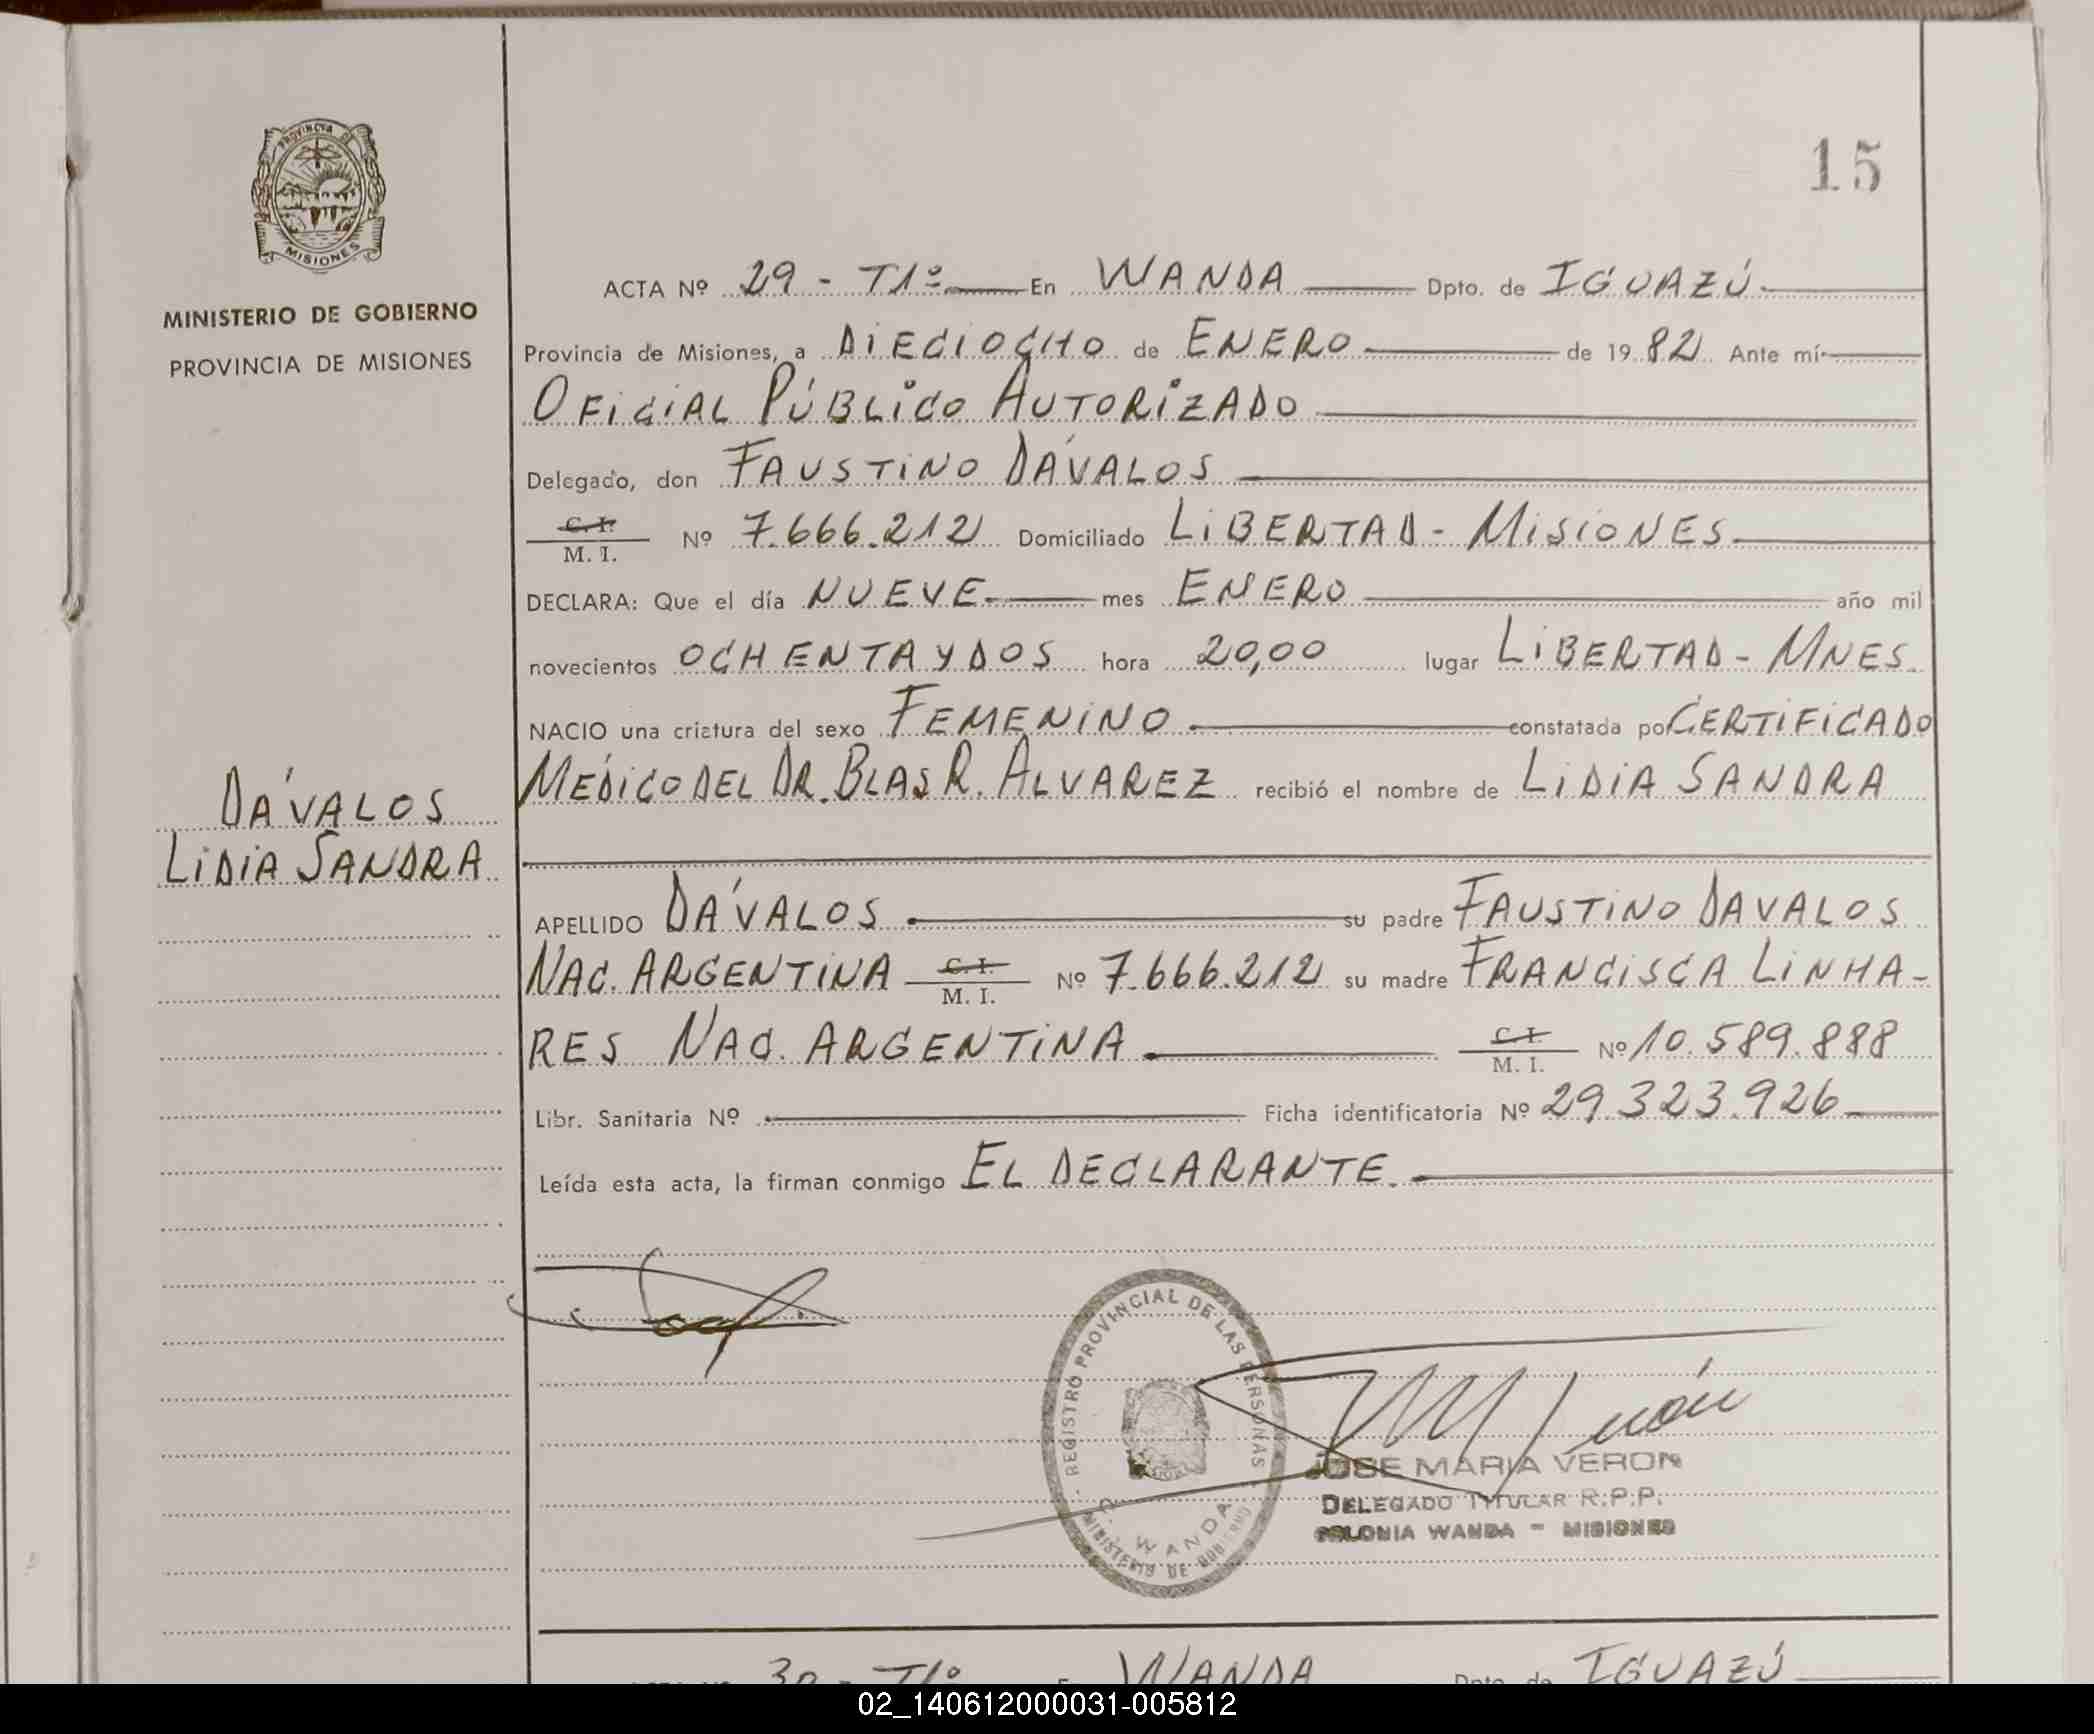 15
PROVINCIA DE
MISIONES
MINISTERIO DE GOBIERNO
PROVINCIA DE MISIONES
DÁVALOS
LIDIA SANDRA
ACTA Nº 29 - T1º En WANDA Dpto. de IGUAZÚ
Provincia de Misiones, a DIECIOCHO de ENERO de 1982 Ante mí
OFICIAL PÚBLICO AUTORIZADO
Delegado, don FAUSTINO DÁVALOS
C. I.
M. I. Nº 7.666.212 Domiciliado LIBERTAD - MISIONES
DECLARA: Que el día NUEVE mes ENERO año mil
novecientos OCHENTA Y DOS hora 20,00 lugar LIBERTAD - MNES
NACIO una criatura del sexo FEMENINO constatada por CERTIFICADO
MÉDICO DEL DR. BLAS R. ALVAREZ recibió el nombre de LIDIA SANDRA
APELLIDO DÁVALOS su padre FAUSTINO DAVALOS
NAC. ARGENTINA C. I. M. I. Nº 7.666.212 su madre FRANCISCA LINHA-
RES NAC. ARGENTINA C. I. M. I. Nº 10.589.888
Libr. Sanitaria Nº Ficha identificatoria Nº 29.323.926
Leída esta acta, la firman conmigo EL DECLARANTE.
REGISTRO PROVINCIAL DE LAS PERSONAS
C. WANDA
MINISTERIO DE GOBIERNO
JOSE MARIA VERON
DELEGADO TITULAR R.P.P.
COLONIA WANDA - MISIONES
ACTA Nº 30 - T1º En WANDA Dpto. de IGUAZÚ
02_140612000031-005812